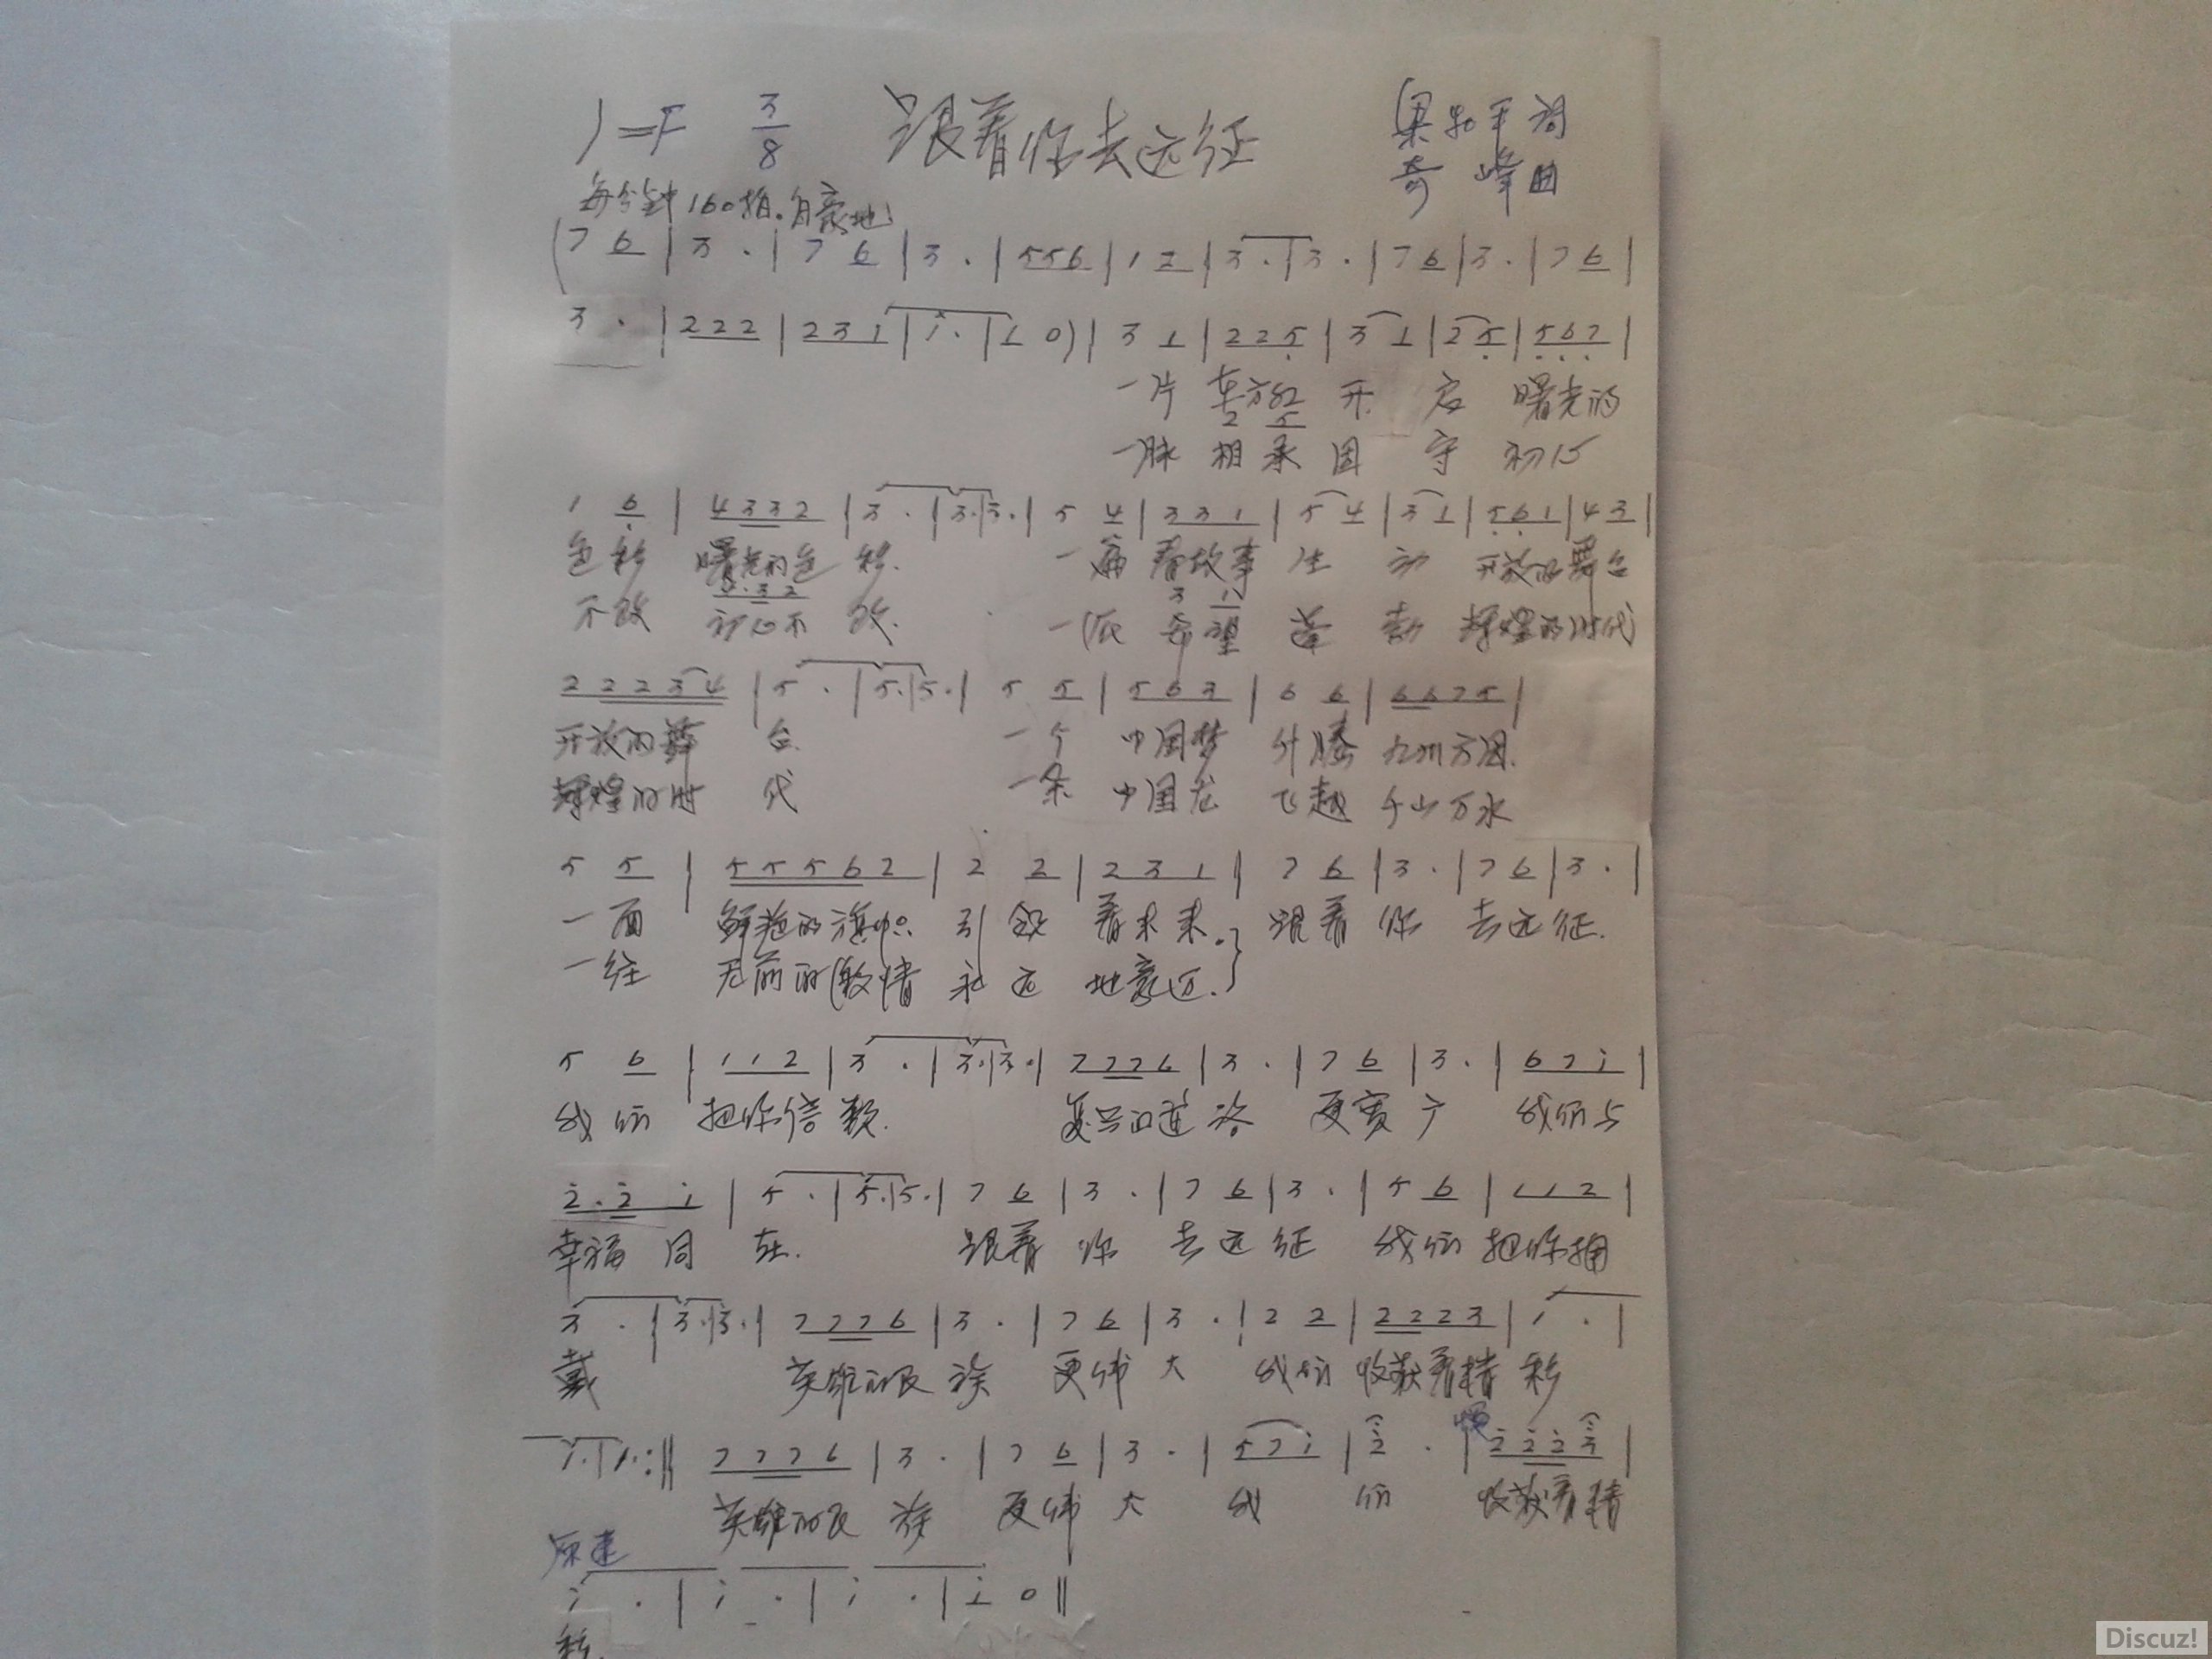 1=F 3/8 跟着你去远征 词
每分钟160拍.自豪地 奇峰曲
(7 6 | 3 . | 7 6 | 3 . | 5 5 6 | 1 2 | 3 . | 3 . | 7 6 | 3 . | 7 6 |
3 . | 2 2 2 | 2 3 1 | 1 . | 1 0) | 3 1 | 2 2 5 | 3 1 | 2 5 | 5 6 7 |
一片 东方红 开 启 曙光的
2 5
一脉 相承 固 守 初心
1 6 | 4 3 3 2 | 3 . | 3 . | 3 . | 5 4 | 3 3 1 | 5 4 | 3 1 | 5 6 1 | 4 3 |
色彩 曙光的色 彩. 一篇 春故事 生 动 开放的舞台
4 . 3 2 3 1
不改 初心不 改. 一派 希望 蓬 勃 辉煌的时代
2 2 2 3 4 | 5 . | 5 . | 5 . | 5 5 | 5 6 3 | 6 6 | 6 6 7 5 |
开放的舞 台. 一个 中国梦 升腾 九州方圆.
辉煌的时 代 一条 中国龙 飞越 千山万水
5 5 | 5 5 5 6 2 | 2 2 | 2 3 1 | 7 6 | 3 . | 7 6 | 3 . |
一面 鲜艳的旗帜 引领 着未来. } 跟着 你 去远 征.
一往 无前的激情 永远 地豪迈.
5 6 | 1 1 2 | 3 . | 3 . | 3 . | 7 7 7 6 | 3 . | 7 6 | 3 . | 6 7 i |
我们 把你信赖. 复兴的道 路 更宽 广 我们与
2 . 2 i | 5 . | 5 . | 5 . | 7 6 | 3 . | 7 6 | 3 . | 5 6 | 1 1 2 |
幸福 同 在. 跟着 你 去远 征 我们 把你拥
3 . | 3 . | 3 . | 7 7 7 6 | 3 . | 7 6 | 3 . | 2 2 | 2 2 2 3 | 1 . |
戴 英雄的民 族 更伟 大 我们 收获着精 彩
慢
i . | 1 . :‖ 7 7 7 6 | 3 . | 7 6 | 3 . | 5 7 i | 2 . | 2 2 2 3 |
英雄的民 族 更伟 大 我 们 收获着精
原速
i . | i . | i . | i 0 ‖
彩.
Discuz!